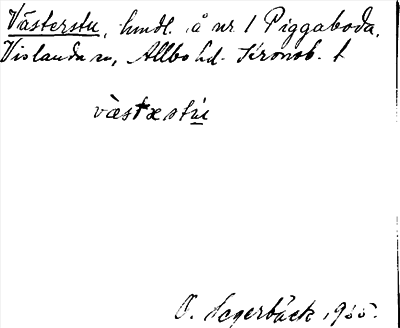 Västerstu, hmdl. å nr 1 Piggaboda,
Vislanda sn, Allbo hd. Kronob. l
västæstú
O. Segerbäck 1935.